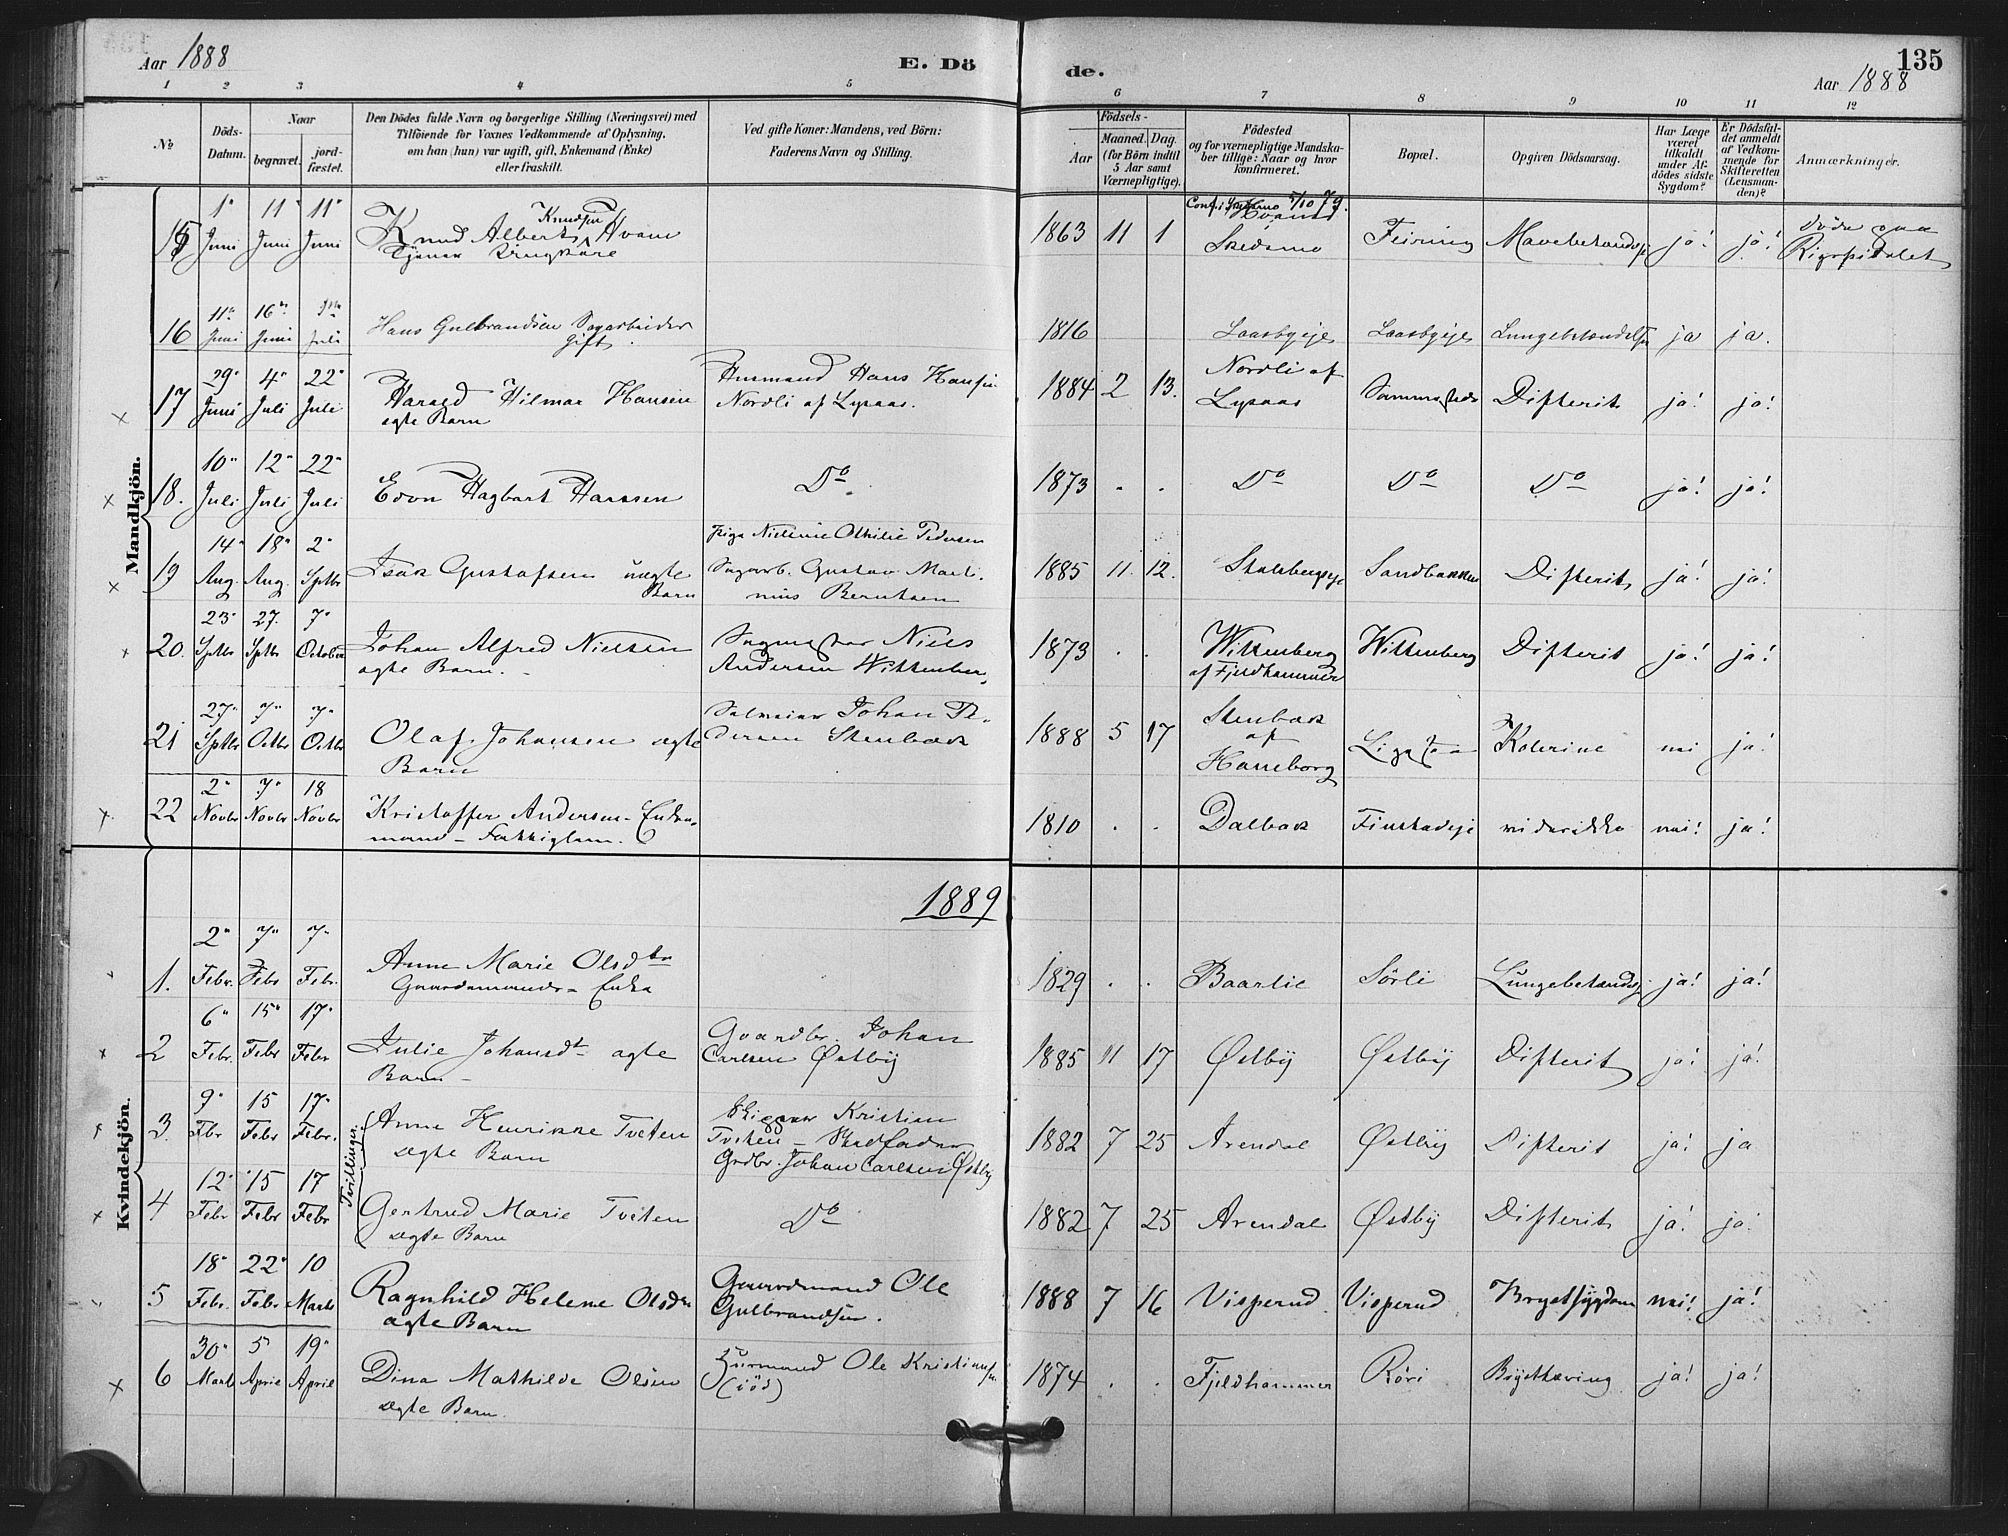 Aar 1888
E. Dö
de.
135
Aar 1888
1 2 3 4 5 6 7 8 9 10 11 12
No
Döds-
Datum.
Naar
begravet.
jord-
fæstet.
Den Dödes fulde Navn og borgerlige Stilling (Næringsvei) med
Tilföiende for Voxnes Vedkommende af Oplysning,
om han (hun) var ugift, gift, Enkemand (Enke)
eller fraskilt.
Ved gifte Koner: Mandens, ved Börn:
Faderens Navn og Stilling.
Födsels-
Aar
Maaned. Dag.
(for Börn indtil
5 Aar samt
Værnepligtige).
Födested
og for værnepligtige Mandska-
ber tillige: Naar og hvor
konfirmeret.
Bopæl.
Opgiven Dödsaarsag.
Har Læge
været
tilkaldt
under Af-
dödes sidste
Sygdom?
Er Dödsfal-
det anmeldt
af Vedkom-
mende for
Skifteretten
(Lensman-
den)?
Anmærkninger.
Mandkjön.
15 1" Juni 11" Juni 11" Juni
Knud Albert Knudsen Hvam
Tjener
1863 11 1
Skedsmo Feiring ja! ja!
Døde paa
Rigspitalet
16 11te Juni 16de Juni Juli
Hans Gulbrandsen Sagarbeider
Gift.
1816 ja ja.
17 29" Juni 4" Juli 22" Juli
Harald Hilmar Hansen
ægte Barn
Husmand Hans Hansen
Nordli af Lysaas.
1884 2 13.
Nordli af
Lysaas
Sammesteds Difterit ja! ja!
18. 10" Juli 12" Juli 22" Juli
Hagbart Hanssen
Do
1873 . . Do Do Do ja! ja!
19 14" Aug. 18" Aug. 2" Sptbr
Isak Gustafsen uægte
Barn
Pige Nieline Othilie Pedersen
Sagarb. Gustav Marti-
nius Berntsen
1885 11. 12. Sandbakken Difterit ja! ja!
20. 23" Sptbr 27. Sptbr 7" October
Johan Alfred Nielsen
ægte Barn.
Sagmester Niels
Andersen Wittenberg
1873 . .
Wittenberg
af Fjeldhammer
Wittenberg Difterit ja! ja!
21 27" Sptbr 7" Octbr 7" Octbr
Olaf Johansen ægte
Barn
Salmaker Johan Pe-
dersen Stenbæk
1888 5 17
Stenbæk
af
Haneborg
Kolerine nei ja!
22 2" Novbr 7" Novbr 18 Novbr
Kristoffer Andersen - Enke-
mand - Fattiglem.
1810 . . Dalbæk Finstadeje nei! ja!
1889
Kvindekjön.
1. 2" Febr. 7" Febr 7" Febr.
Anne Marie Olsdtr
Gaardmands-Enke
1829 . . Baarlie Sörli Lungebetændelse ja! ja!
2 6" Febr. 15" Febr 17" Febr
Julie Johansdt ægte
Barn
Gaardbr. Johan
Carlsen Østby
1885 11 17 Østby Østby Difterit ja! ja!
Tvillinger.
3. 9" Fbr 15 Febr 17" Febr.
Anne Henrikke Tveten
ægte Barn
Skipper Kristian
Tveten - Stedfader
Grdbr. Johan Carlsen Østby
1882 7 25 Arendal Østby Difterit ja! ja
4 12" Febr 15 Febr 17 Febr
Gertrud Marie Tveten
ægte Barn
Do
1882 7 25 Arendal Østby Difterit ja! ja!
5 18" Febr. 22" Febr 10 Marts
Ragnhild Helene Olsdtr
ægte Barn
Gaardmand Ole
Gulbrandsen.
1888 7 16 Visperud Visperud Brystsygdom nei! ja!
6 30" Marts 5" April 19" April
Dina Mathilde Olsen
ægte Barn.
Husmand Ole Kristiansen
(död)
1874 . . Fjeldhammer Röri Brysttæring ja! ja!